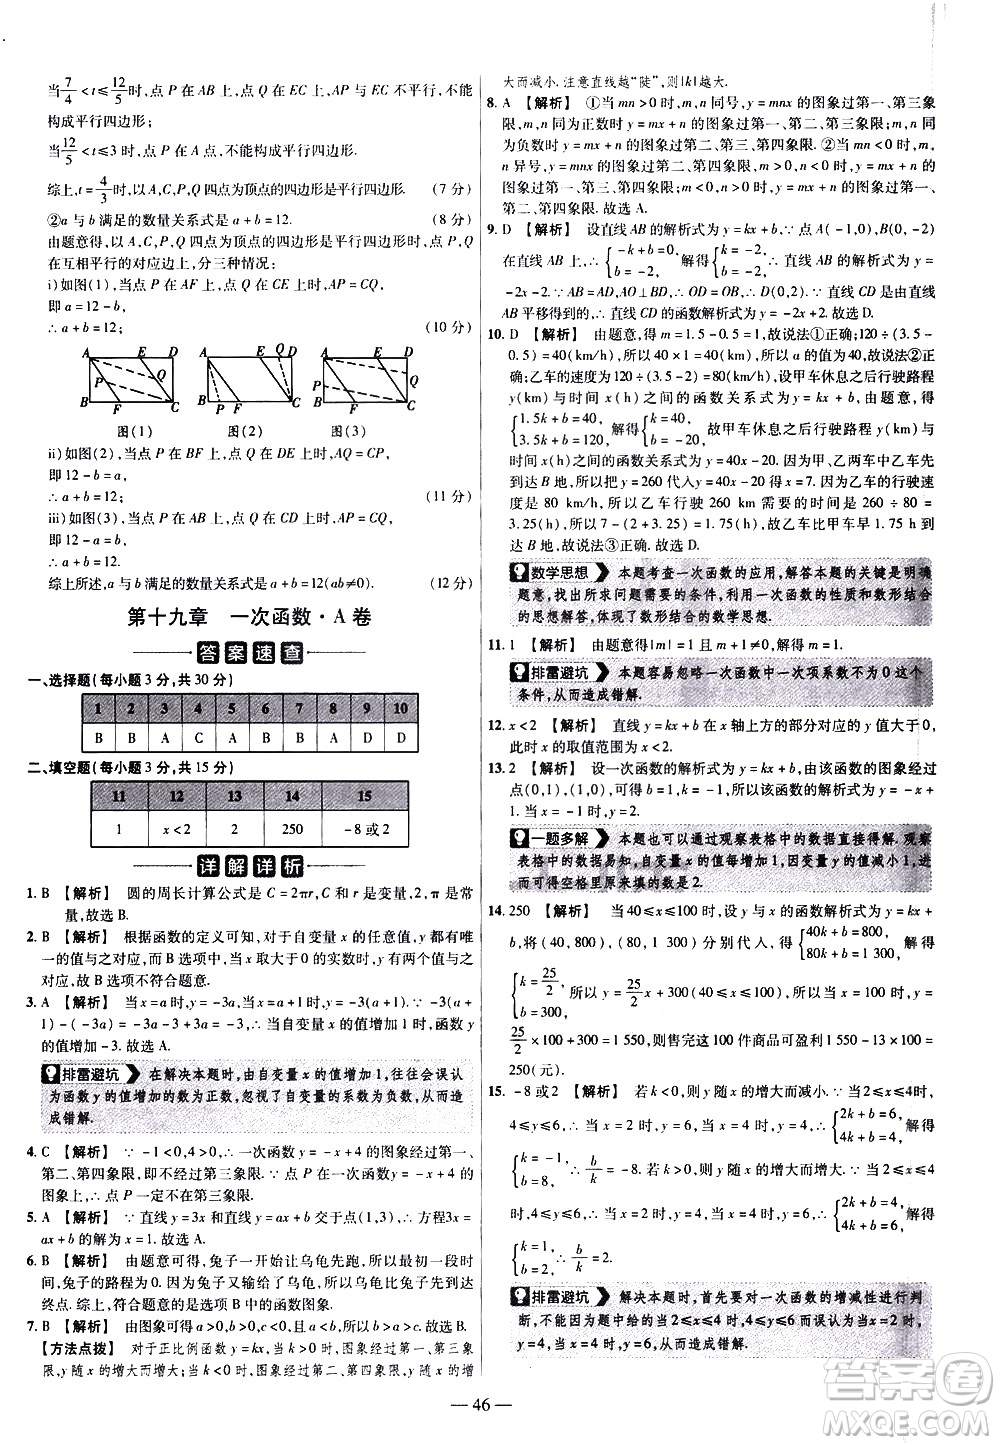 当7/4<t≤12/5时,点 P 在 AB 上,点 Q 在 EC 与 AB 不平行,不能
构成平行四边形;
当12/5<t≤3 时,点 P、Q 在 AB 上,不能构成平行四边形.
综上,t=4/3时,以 A,C,P,Q 为顶点的四边形是平行四边形. (7 分)
②a 与 b 满足的数量关系式是 a+b=12. (8 分)
由题意得,以 A,C,P,Q 四点为顶点的四边形是平行四边形,点 P,Q
在互相平行的对应边上,分三种情况:
i)如图(1),当点 P 在 AF 上,点 Q 在 CE 上时,AP=CQ,
即 a=12-b,
∴ a+b=12; (10 分)
A E D
P Q
B F C
图(1)
A E Q D
B P F C
图(2)
A E D
P Q
B F C
图(3)
ii)如图(2),当点 P 在 BF 上,点 Q 在 DE 上时,AQ=CP,
即 12-b=a,
∴ a+b=12; (11 分)
iii)如图(3),当点 P 在 AB 上,点 Q 在 CD 上时,AP=CQ,
即 12-a=b,
∴ a+b=12.
综上所述,a 与 b 满足的数量关系式是 a+b=12(ab≠0). (12 分)
第十九章 一次函数·A 卷
答案速查
一、选择题(每小题 3 分,共 30 分)
1 2 3 4 5 6 7 8 9 10
B B A C A B B A D D
二、填空题(每小题 3 分,共 15 分)
11 12 13 14 15
1 x<2 2 250 -8 或 2
详解详析
1. B 【解析】 圆的周长计算公式是 C=2πr,C 和 r 是变量,2,π 是常
量,故选 B.
2. B 【解析】 根据函数的定义可知,对于自变量 x 的任意值,y 都有唯
一的值与之对应,而 B 选项中,对于大于 0 的实数时,y 有两个值与之
对应,所以 B 选项不符合题意.
3. A 【解析】 当 x=a 时,y=-3a,当 x=a+1 时,y=-3(a+1),∵ -3(a+
1)-(-3a)=-3a-3+3a=-3,∴ 当自变量 x 的值增加 1 时,函数 y
的值增加-3.故选 A.
排雷避坑 在解决本题时,由自变量 x 的值增加 1,往往会误认
为函数 y 的值增加的数为正数,忽视了自变量的系数为负数,从而造
成错解.
4. C 【解析】 ∵ -1<0,4>0,∴ 一次函数 y=-x+4 的图象经过第一、
第二、第四象限,即不经过第三象限.∵ 点 P 在一次函数 y=-x+4 的
图象上,∴ 点 P 一定不在第三象限.
5. A 【解析】 ∵ 直线 y=3x 和直线 y=ax+b 交于点(1,3),∴ 方程3x=
ax+b 的解为 x=1.故选 A.
6. B 【解析】 由题意可得,兔子一开始让乌龟先跑,所以最初一段时
间,兔子的路程为 0.因为兔子输给了乌龟,所以乌龟比兔子先到达
终点.综上,符合题意的是选项 B 中的函数图象.
7. B 【解析】 由图象可得 a>0,b>0,c<0,且 a<b,所以 b>a>c.故选 B.
【方法点拨】 对于正比例函数 y=kx,k>0 时,图象经过第一、第三象
限,y 随 x 的增大而增大;k<0 时,图象经过第二、第四象限,y 随 x 的增
大而减小.注意直线越“陡”,则|k|越大.
8. A 【解析】 ①当 mn>0 时,m,n 同号,y=mnx 的图象过第一、第三象
限,m,n 同为正数时 y=mx+n 的图象过第一、第二、第三象限,m,n 同
为负数时 y=mx+n 的图象过第二、第三、第四象限.②当 mn<0 时,m,
n 异号,y=mnx 的图象过第二、第四象限,m>0,n<0 时,y=mx+n 的
图象过第一、第三、第四象限,m<0,n>0 时,y=mx+n 的图象过第一、
第二、第四象限.故选 A.
9. D 【解析】 设直线 AB 的解析式为 y=kx+b,∵ 点 A(-1,0),B(0,-2)
在直线 AB 上,∴ {-k+b=0, b=-2, 解得{k=-2, b=-2, ∴ 直线 AB 的解析式为 y=
-2x-2.∵ AB=AD,AO⊥BD,∴ OD=OB,∴ D(0,2),∵ 直线 CD 由直线
AB 平移得到的,∴ 直线 CD 的函数解析式为 y=-2x+2.故选 D.
10. D 【解析】 由题意,得 m=1.5-0.5=1,故说法①正确;120÷(3.5-
0.5)=40(km/h),所以 40×1=40(km),所以 a 的值为 40,故说法②正
确;乙车的速度为120÷(3.5-2)=80(km/h),设甲车休息之后行驶路程
y(km)与时间 x(h)之间的函数关系式为 y=kx+b,由题意,得
{1.5k+b=40, 3.5k+b=120, 解得{k=40, b=-20, 故甲车休息之后行驶路程 y(km)与
时间 x(h)之间的函数关系式为 y=40x-20.因为甲、乙两车中乙车先到
达 B 地,所以把 y=260 代入y=40x-20 得 x=7.因为乙车的行驶速
度是 80 km/h,所以乙车行驶 260 km 需要的时间是 260÷80=
3.25(h),所以 7-(2+3.25)=1.75(h),故乙车比甲车早 1.75 h 到
达 B 地,所以说法③正确.故选 D.
数学思想 本题考查一次函数的应用,解答本题的关键是明确
题意,找出所求问题需要的条件,利用一次函数的性质和数形结合
的思想解答,体现了数形结合的数学思想.
11. 1 【解析】 由题意,得|m|=1 且 m+1≠0,解得 m=1.
排雷避坑 本题容易忽略一次函数中一次项系数不为 0 这个
条件,从而造成错解.
12. x<2 【解析】 直线 y=kx+b 在 x 轴上方的部分对应的 y 值大于 0,
此时 x 的取值范围为 x<2.
13. 2 【解析】 设一次函数的解析式为 y=kx+b,由该函数的图象经过
点(0,1),(1,0),可得 b=1,k=-1,所以该函数的解析式为 y=-x+
1.当 x=-1 时,y=1+1=2.
一题多解 本题也可以通过观察表格中的数据直接得解.观察
表格中的数据易知,自变量 x 的值每增加 1,y 的值减小 1,进
而可得空格里原来填的数是 2.
14. 250 【解析】 当 40≤x≤100 时,设 y 与 x 的函数解析式为 y=kx+
b,将(40,800),(80,1 300)分别代入,得{40k+b=800, 80k+b=1 300, 解得
{k=25/2, b=300, ∴ y=25/2x+300(40≤x≤100).当 x=100 时,y=
25/2×100+300=1 550,则售完这 100 件商品可盈利 1 550-1 300=
250(元).
15. -8 或 2 【解析】 若 k<0,则 y 随 x 的增大而减小.∵ 当2≤x≤4时,
4≤y≤6,∴ 当 x=2 时,y=6,当 x=4 时,y=4,∴ {2k+b=6, 4k+b=4, 解得
{k=-1, b=8, ∴ b/k=-8.若 k>0,则 y 随 x 的增大而增大.∵ 当 2≤x≤4
时,4≤y≤6,∴ 当 x=2 时,y=4,当 x=4 时,y=6,∴ {2k+b=4, 4k+b=6, 解得
{k=1, b=2, ∴ b/k=2.综上所述,b/k的值是-8 或 2.
排雷避坑 解决本题时,首先要对一次函数的增减性进行判
断,不能因为题中给的当 2≤x≤4 时,4≤y≤6 而误认为当x=2
时,y=4,当 x=4 时,y=6,从而造成漏解.
— 46 —
答案圈
MXQE.COM